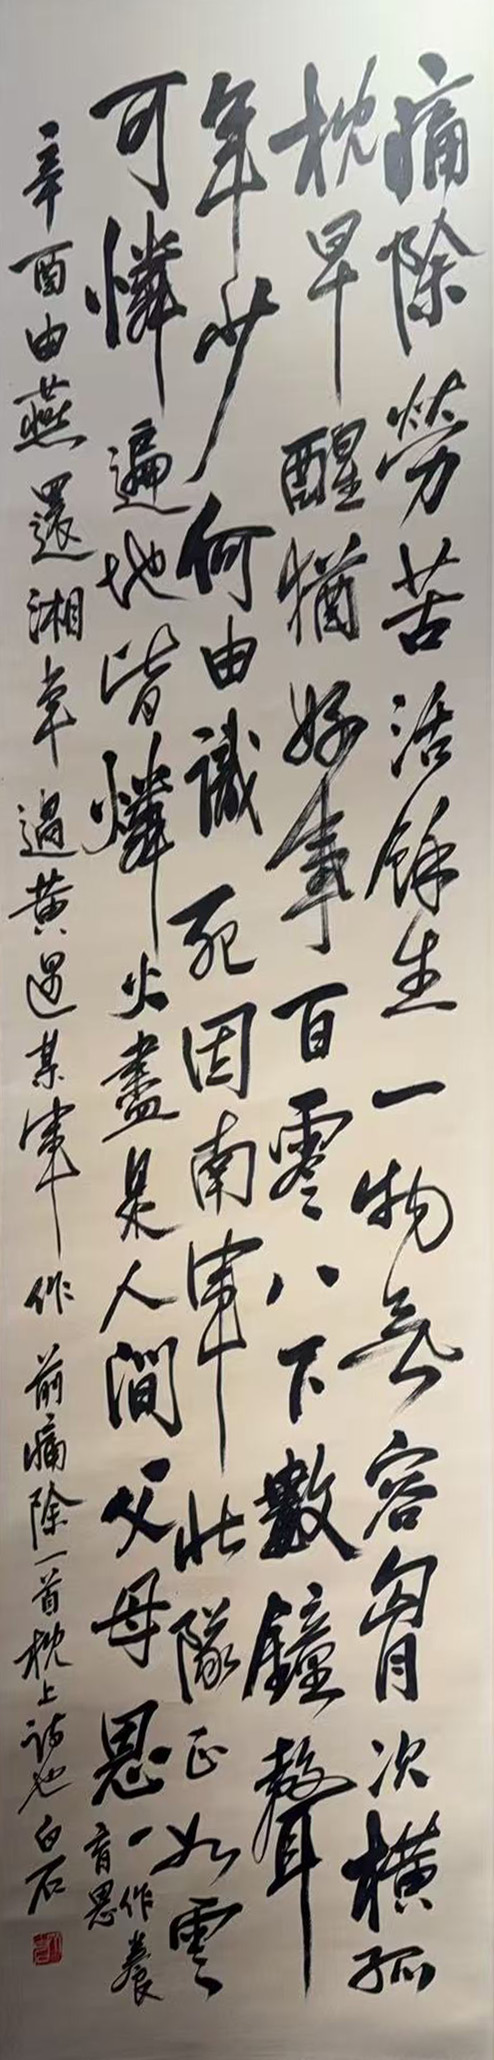 痛除勞苦活餘生一物無容胷次橫孤
枕早醒猶好事百零八下數鐘聲
年少何由識死因南軍壯隊正如雲
可憐遍地皆燐火盡是人間父母恩一作養
育恩
辛酉由燕還湘草過黃遇某軍作前痛除一首枕上詩也白石